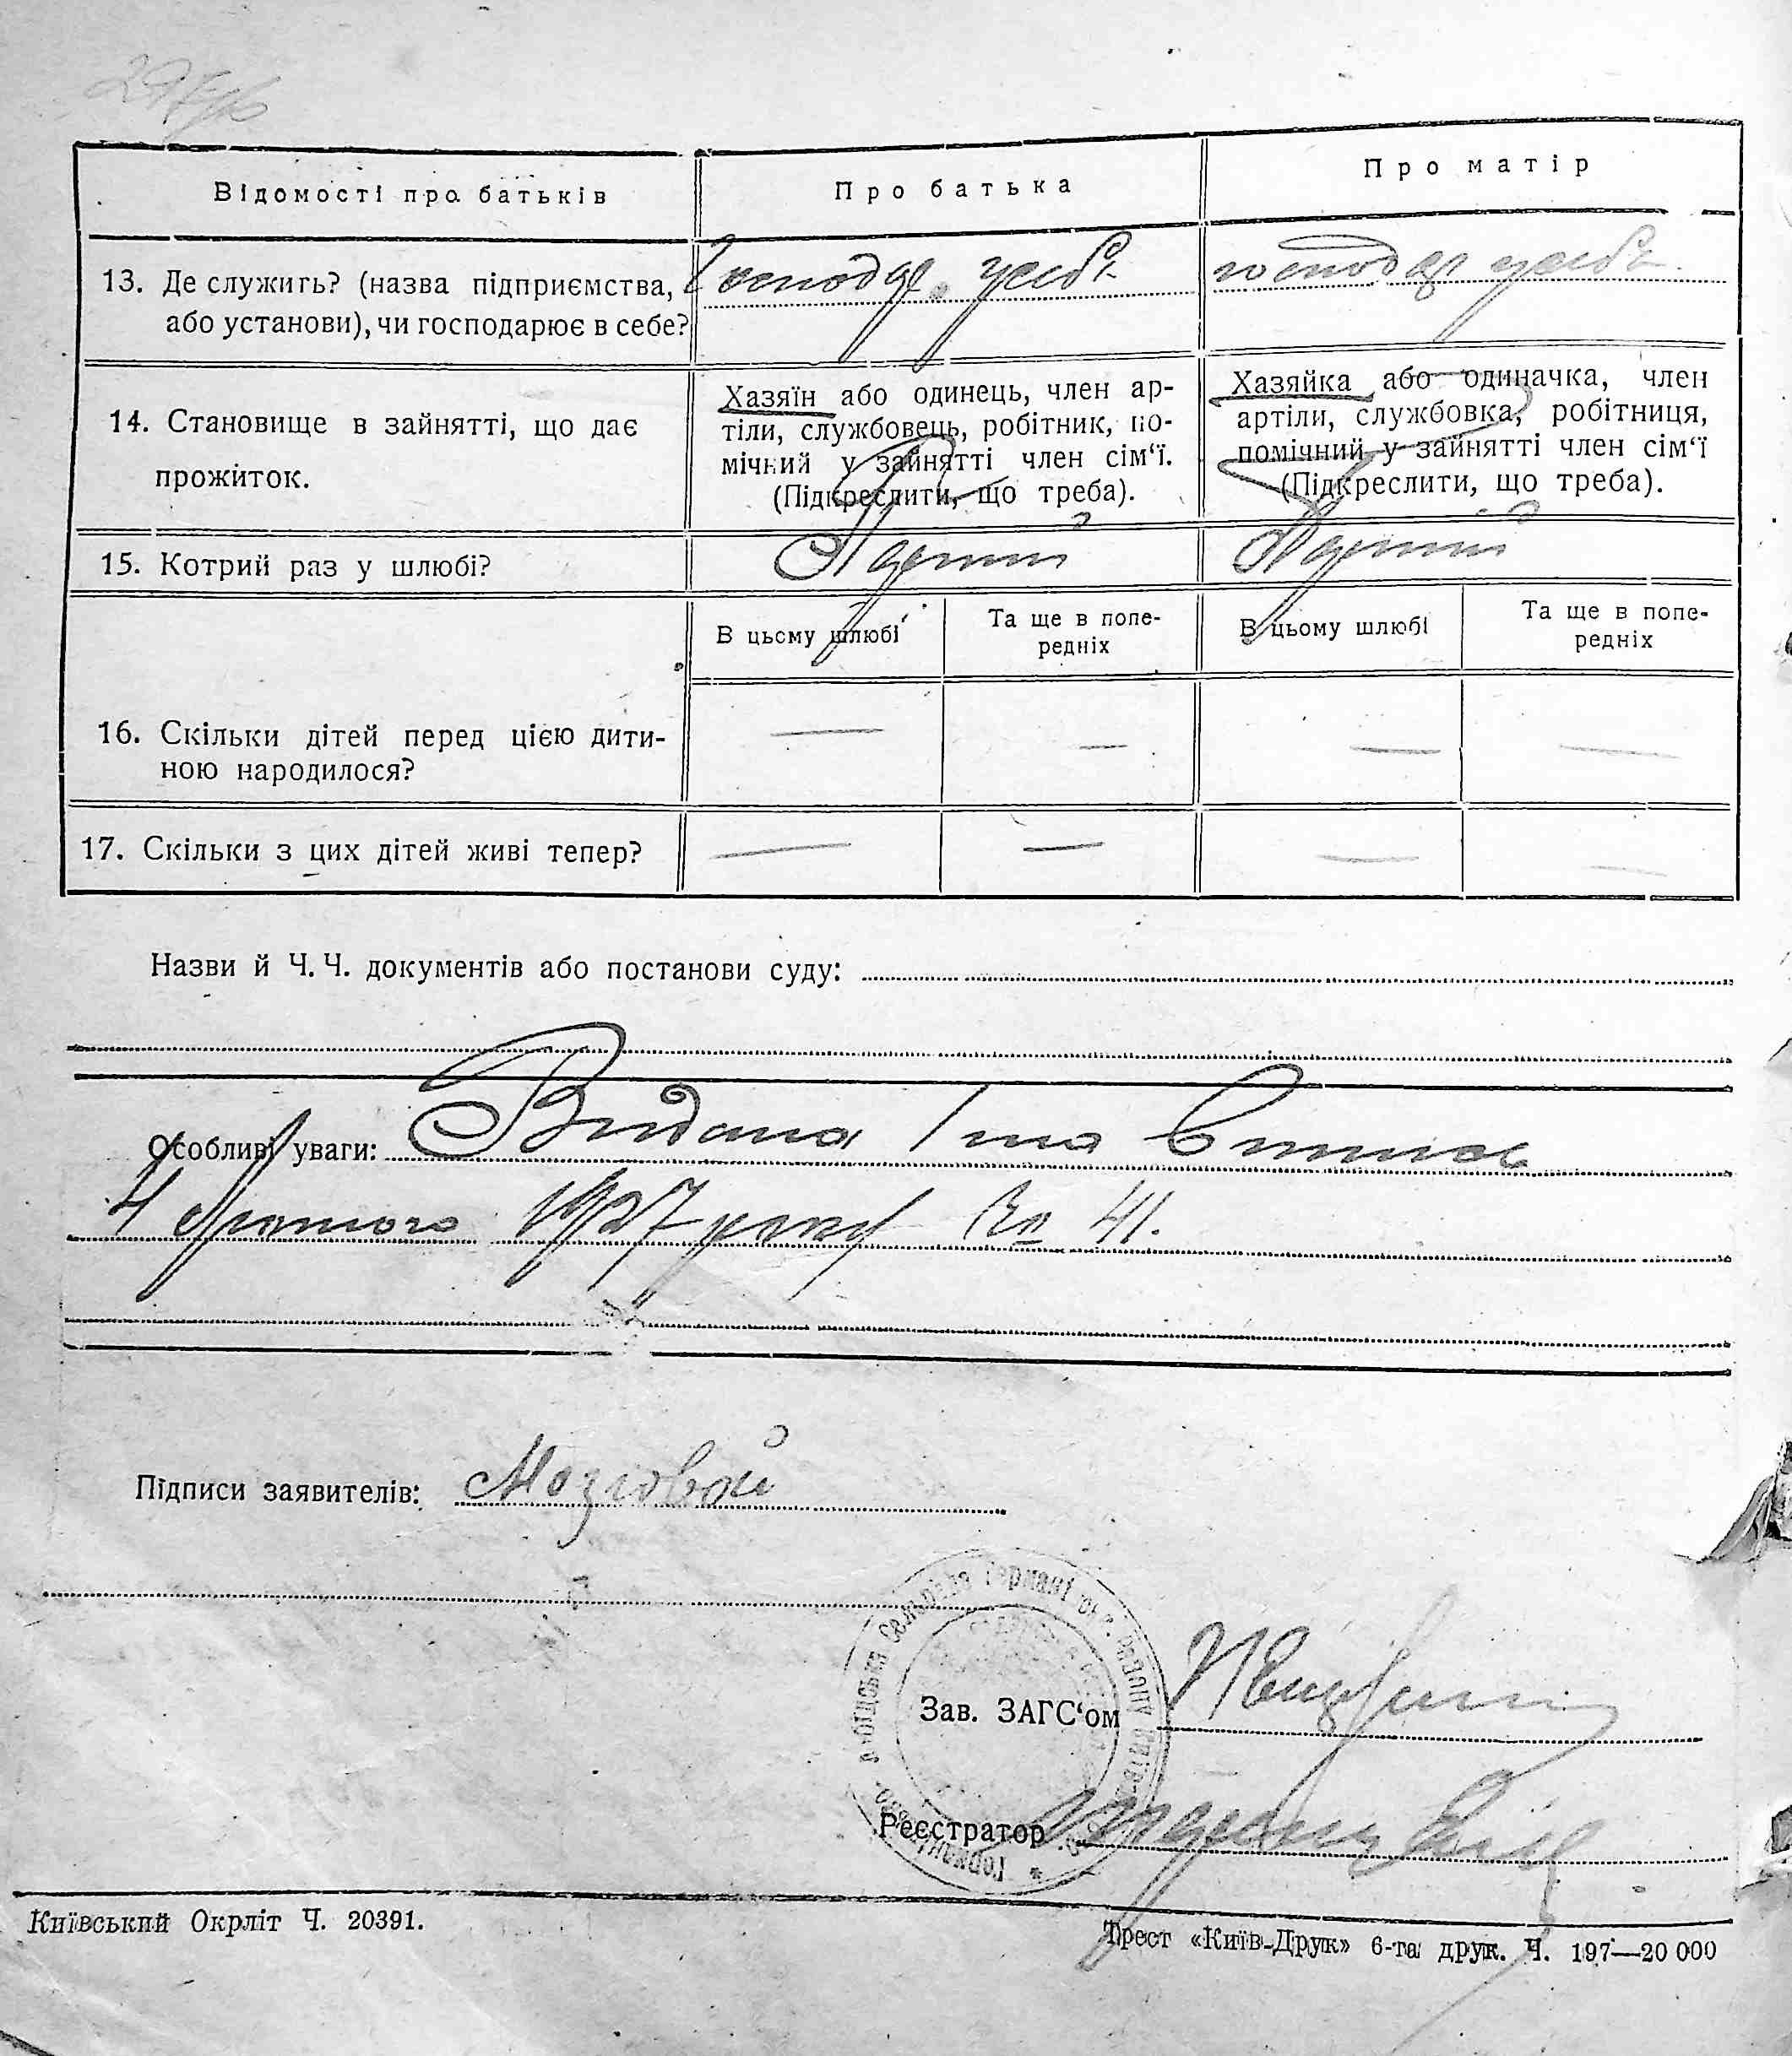 Відомості про батьків
Про батька
Про матір
13. Де служить? (назва підприємства,
або установи), чи господарює в себе?
Господар. у себе
господар у себе
14. Становище в зайнятті, що дає
прожиток.
Хазяїн або одинець, член ар-
тіли, службовець, робітник, по-
мічний у зайнятті член сім‘ї.
(Підкреслити, що треба).
Хазяйка або одиначка, член
артіли, службовка, робітниця,
помічний у зайнятті член сім‘ї
(Підкреслити, що треба).
15. Котрий раз у шлюбі?
Перший
Перший
В цьому шлюбі
Та ще в попе-
редніх
В цьому шлюбі
Та ще в попе-
редніх
16. Скільки дітей перед цією дити-
ною народилося?
— — — —
17. Скільки з цих дітей живі тепер?
— — — —
Назви й Ч. Ч. документів або постанови суду:
Особливі уваги: Видана
4 Лютого 1927 року № 41.
Підписи заявителів: Мозговой
Зав. ЗАГС‘ом
Реєстратор
Київський Окрліт Ч. 20391.
Трест «Київ-Друк» 6-та друк. Ч. 197—20 000